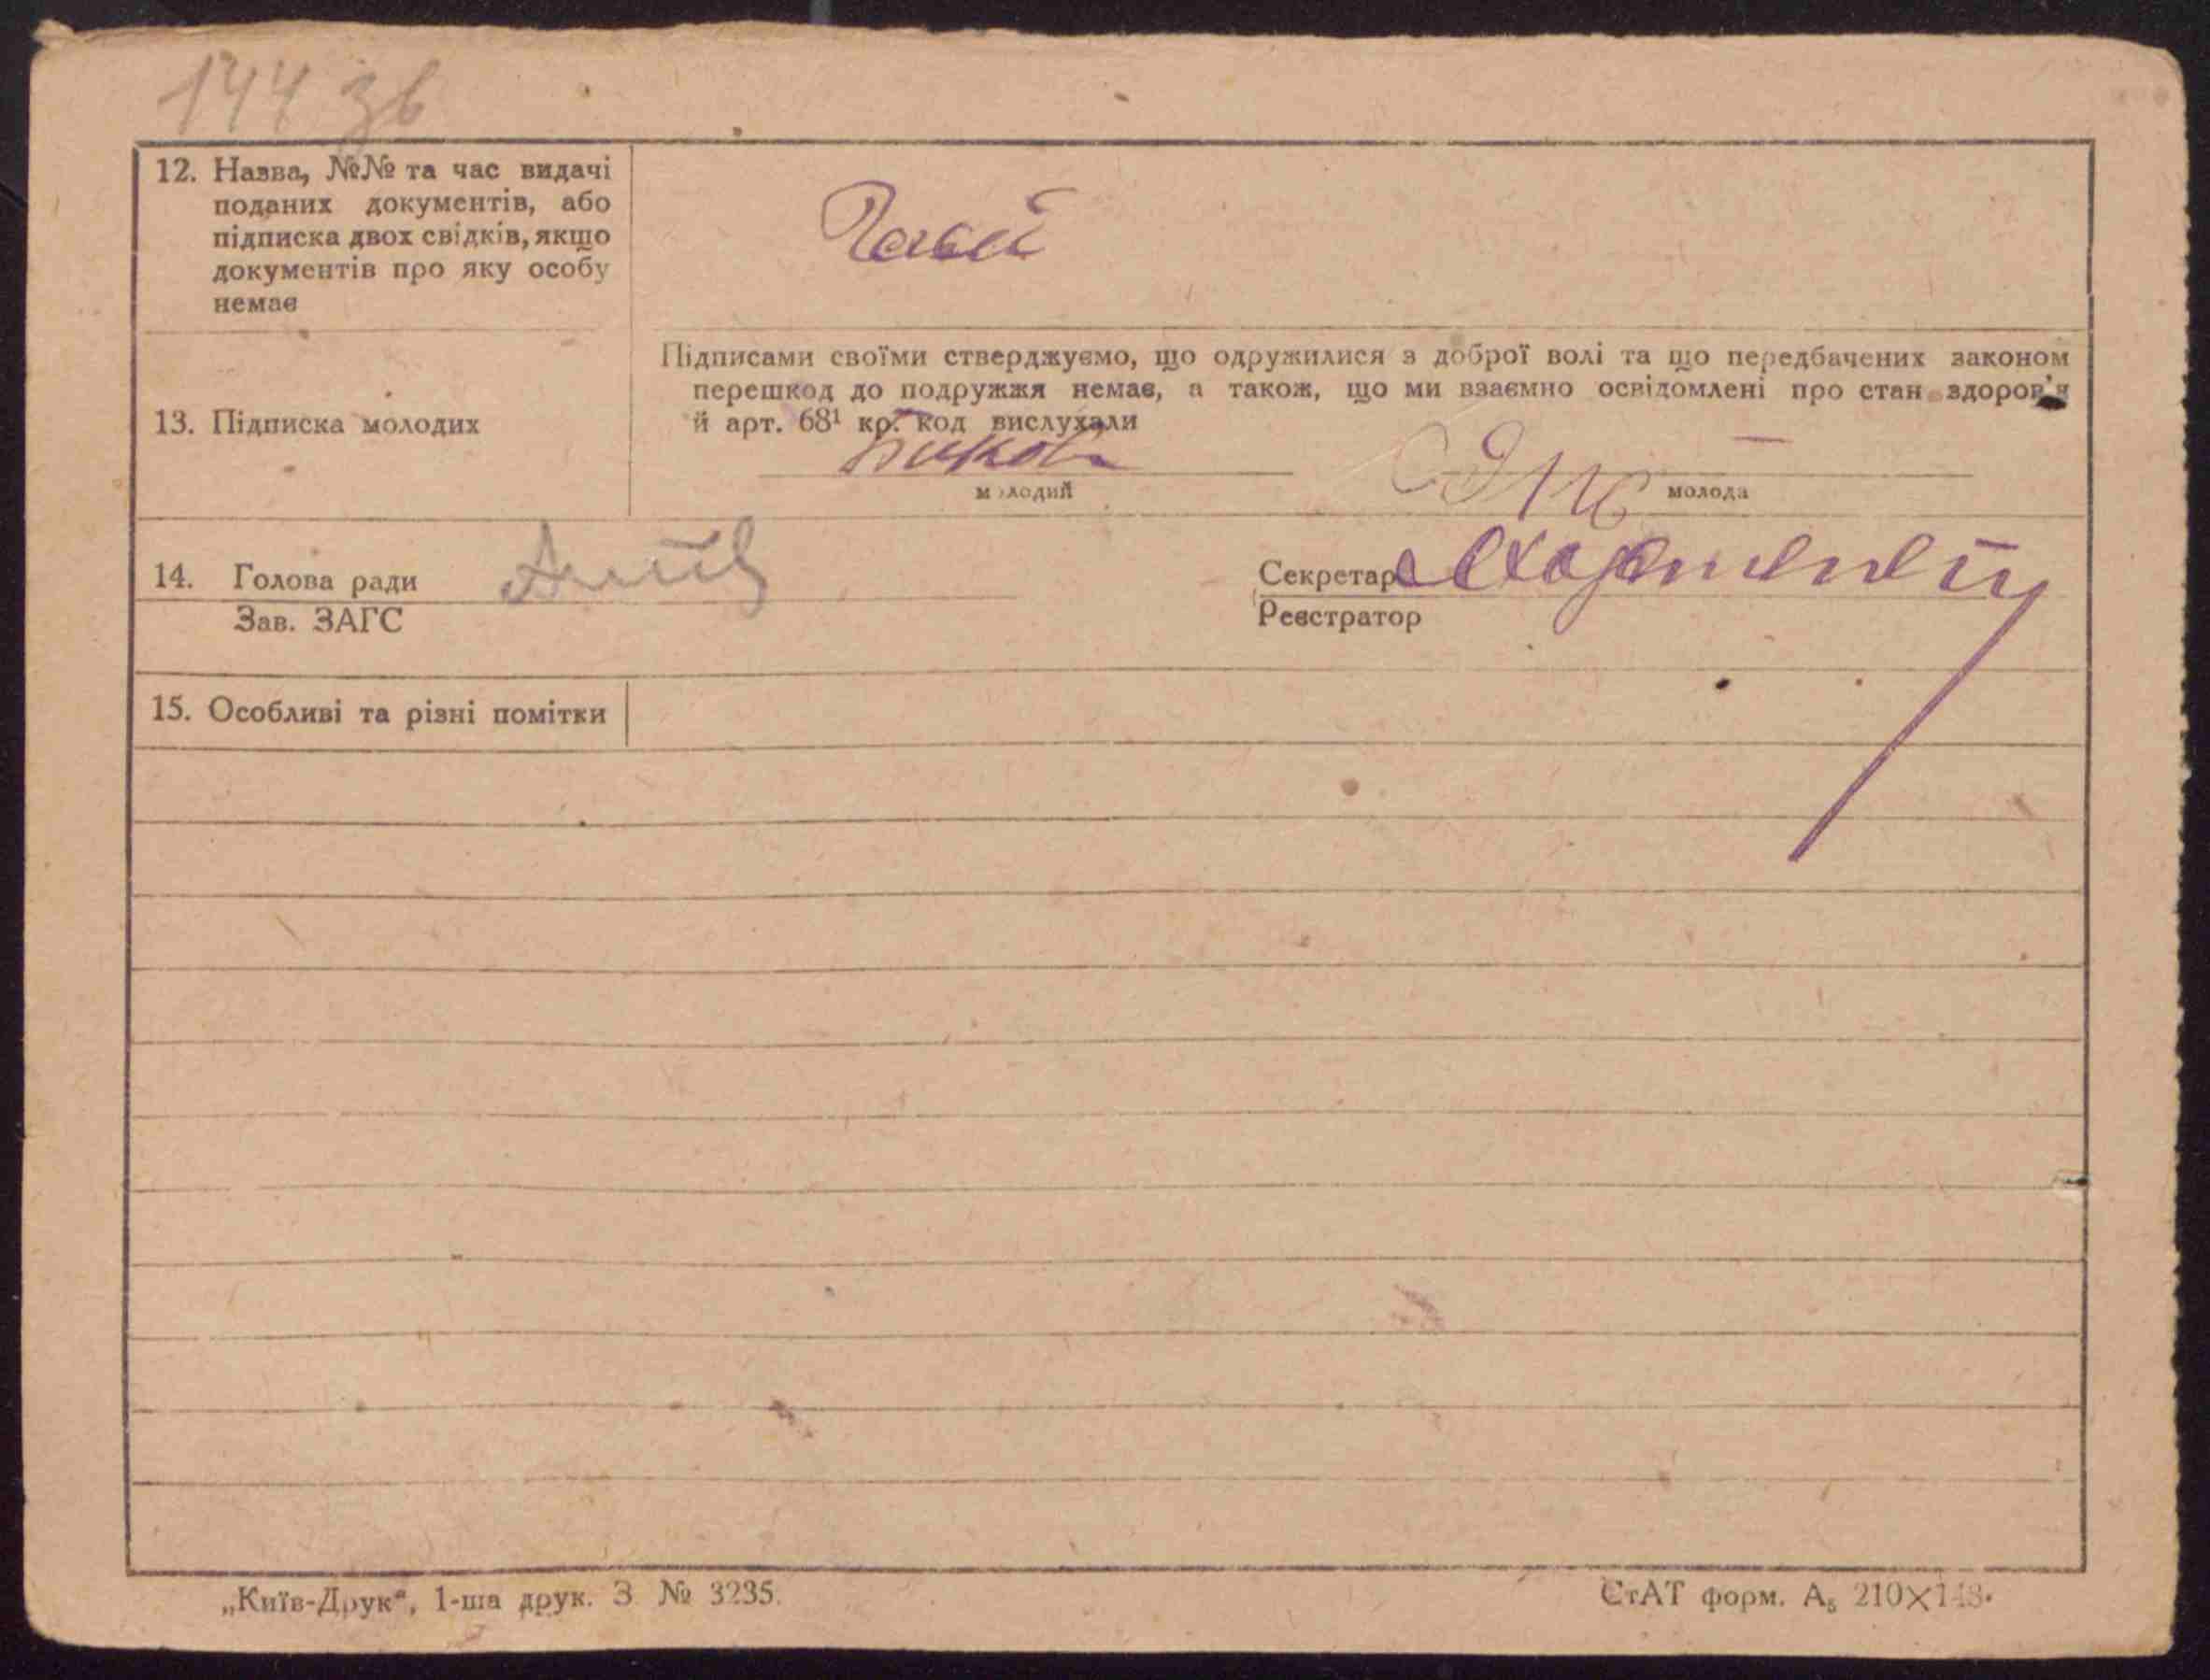 144 зв
12. Назва, №№ та час видачі
поданих документів, або
підписка двох свідків, якщо
документів про яку особу
немає
13. Підписка молодих
Підписами своїми стверджуємо, що одружилися з доброї волі та що передбачених законом
перешкод до подружжя немає, а також, що ми взаємно освідомлені про стан здоров'я
й арт. 68¹ кр. код вислухали
молодий
молода
14. Голова ради
Зав. ЗАГС
Секретар
Реєстратор
15. Особливі та різні помітки
„Київ-Друк“, 1-ша друк. З № 3235.
СтАТ форм. А₅ 210×148.